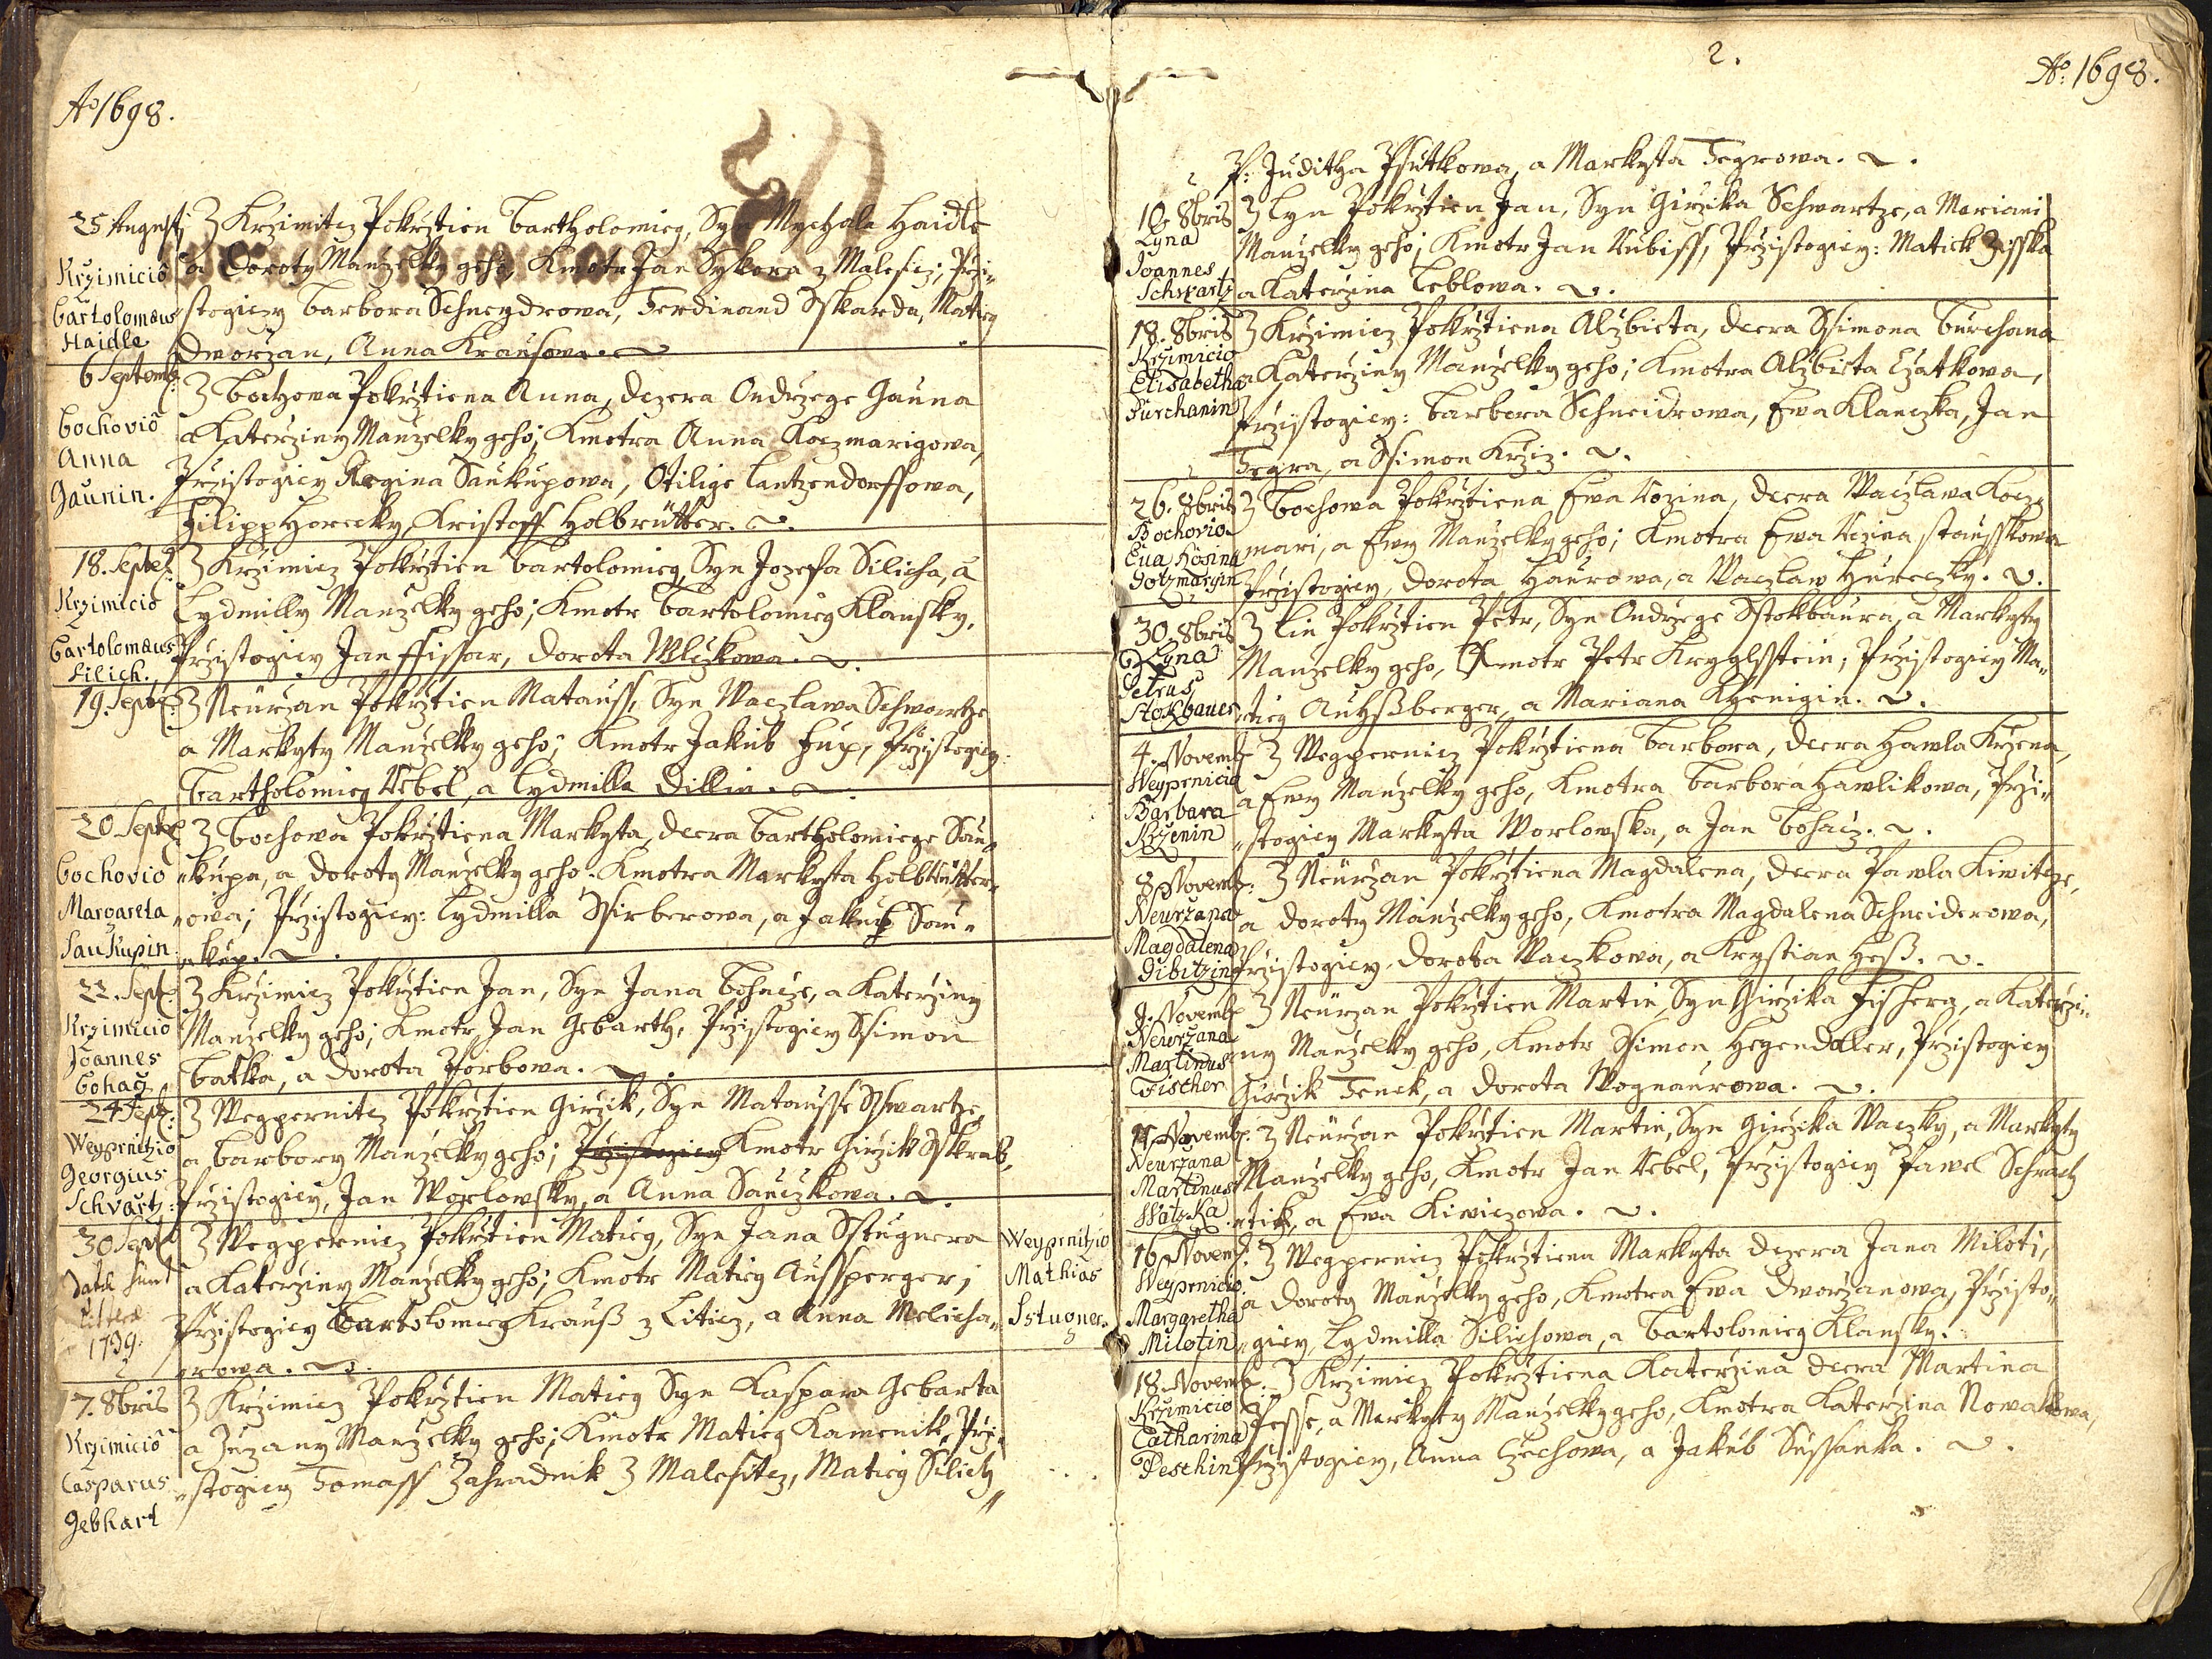 Aº 1698.
25 Augusti
Krzimicio
Bartolomæus
Haidle
Z Krzimitz Pokrztien Bartholomieg, Syn Mychala Haidle
a Doroty Manzelky geho, Kmotr Jan Sykora z Malesicz; Przi-
stogiczy Barbora Schneydrowa, Ferdinand Sskarda, Matieg
Dworzan, Anna Krausowa.
6 Septemb:
Bochovio
Anna
Gaunin.
Z Bochowa Pokrztiena Anna, Dczera Ondrzege Gauna
a Katerziny Manzelky geho; Kmotra Anna Koczmarigowa,
Przistogicy Regina Saukupowa, Otilige Lantzendorffowa,
Filipp Horeczky, Kristoff Holbrütter.
18. Septe:
Krzimicio
Bartolomæus
Silich.
Z Krzimicz Pokrztien Bartolomieg, Syn Jozefa Silicha, a
Lydmilly Manzelky geho; Kmotr Bartolomieg Klansky,
Przistogicy Jan ffissar, Dorota Wlczkowa.
19. Septe:
Z Neurzan Pokrztien Matauss, Syn Waczlawa Schwartze
a Markyty Manzelky geho; Kmotr Jakub Fux, Przistogicy
Bartholomieg Nebel, a Lydmilla Dillin.
20. Sept:
Bochovio
Margareta
Saukupin
Z Bochowa Pokrztiena Markyta, Dcera Bartholomiege Sau-
kupa, a Doroty Manzelky geho. Kmotra Markyta Holbrütter-
owa; Przistogicy: Lydmilla Ssirberowa, a Jakub Sau-
kup.
22. Sept:
Krzimicio
Joannes
Bohacz
Z Krzimicz Pokrztien Jan, Syn Jana Bohacze, a Katerziny
Manzelky geho; Kmotr Jan Gebarth, Przistogicy Ssimon
Batka, a Dorota Forbowa.
24 Sept:
Weyprnitzio
Georgius
Schvartz.
Z Wegpernitz Pokrztien Girzik, Syn Matausse Sswartze,
a Barbory Manzelky geho; Przistogicy Kmotr Girzik Sskrab,
Przistogicy, Jan Worlowsky, a Anna Sauczkowa.
30 Sept
Datæ sunt
Litteræ
1739.
Z Wegpernicz Pokrztien Matieg, Syn Jana Sstugnera
a Katerziny Manzelky geho; Kmotr Matieg Aussperger;
Przistogicy Bartolomieg Krauß z Liticz, a Anna Melicha-
rowa.
Weyprnitzio
Mathias
Sstugner.
7. 8bris
Krzimicio
Casparus
Gebhart
Z Krzimicz Pokrztien Matieg Syn Kaspara Gebarta
a Zuzany Manzelky geho; Kmotr Matieg Kamenik, Przi-
stogicy Tomass Zahradnik Z Malesitz, Matieg Silich,
2.
Aº: 1698.
P: Juditha Psutkowa, a Markyta Fegrowa.
10. 8bris
Lyna
Joannes
Schwartz
Z Lyn Pokrztien Jan, Syn Girzika Schwartze, a Mariani
Manzelky geho; Kmotr Jan Kubiss, Przistogicy: Matieg Zisska
a Katerzina Leblowa.
18. 8bris
Krzimicio
Elisabetha
Purchanin
Z Krzimicz Pokrztiena Alzbieta, Dcera Ssimona Burchana
a Katerziny Manzelky geho; Kmotra Alzbieta Czatkowa,
Przistogicy: Barbora Schneidrowa, Ewa Klanczka, Jan
Fegra, a Ssimon Krziz.
26. 8bris
Bochovio
Eua Rosina
Gotzmaryin
Z Bochowa Pokrztiena Ewa Rozina, Dcera Waczlawa Kocz-
mari, a Ewy Manzelky geho; Kmotra Ewa Rozina Stausskowa
Przistogicy, Dorota Haurowa, a Waczlaw Hureczky.
30. 8bris
Lyna
Petrus
Stokbauer
Z Lin Pokrztien Petr, Syn Ondrzege Sstokbaura, a Markyty
Manzelky geho, Kmotr Petr Kryglsstein; Przistogicy Ma-
tieg Aussberger, a Mariana Kyenigin.
4. Novemb
Weyprnicio
Barbara
Krzenin
Z Wegpernicz Pokrztiena Barbora, Dcera Hawla Krzena,
a Ewy Manzelky geho, Kmotra Barbora Hawlikowa, Przi-
stogicy Markyta Worlowska, a Jan Bohacz.
8. Novemb:
Neurzana
Magdalena
Kibitzin
Z Neurzan Pokrztiena Magdalena, Dcera Pawla Kiwitze,
a Doroty Manzelky geho, Kmotra Magdalena Schneiderowa,
Przistogicy, Dorota Waczkowa, a Krystian Heß.
9. Novemb
Neurzana
Martinus
Fischer
Z Neurzan Pokrztien Martin, Syn Girzika Fishera, a Katerzi-
ny Manzelky geho, Kmotr Ssimon Hegendoller, Przistogicy
Girzik Fenck, a Dorota Wognaurowa.
11. Novemb.
Neurzana
Martinus
Watzka
Z Neurzan Pokrztien Martin, Syn Girzika Waczky, a Markyty
Manzelky geho, Kmotr Jan Nebel, Przistogicy Pawel Schrach
tik, a Ewa Kiwiczowa.
16 Novemb.
Weyprnicio
Margaretha
Milotin
Z Wegpernicz Pokrztiena Markyta Dczera Jana Miloti,
a Doroty Manzelky geho, Kmotra Ewa Dworzanowa, Przisto-
gicy, Lydmilla Silichowa, a Bartolomieg Klansky.
18. Novemb:
Krzimicio
Catharina
Peschin
Z Krzimicz Pokrztiena Katerzina Dcera Martina
Pesse, a Markyty Manzelky geho, Kmotra Katerzina Nowakowa,
Przistogicy, Anna Czechowa, a Jakub Sussanka.